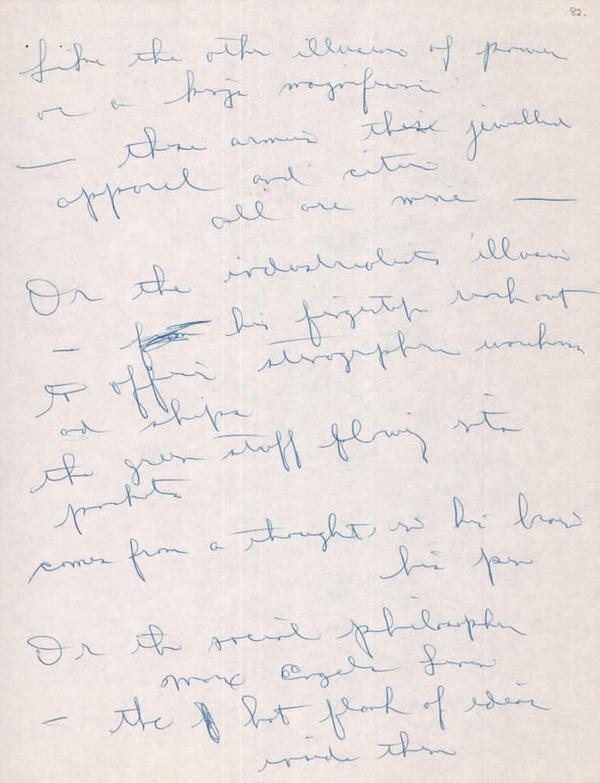 82.
Like the other illusions of power
or a king's magnificence
— these armies these jewelled
apparel and cities
all are mine —
Or the industrialists illusion
— his fingertips reach out
to offices stenographers workers
and ships
the green stuff flowing into
pockets
comes from a thought, in his brain
his pen
Or the social philosopher
Marx Engels Lenin
— the hot flash of ideas
inside them